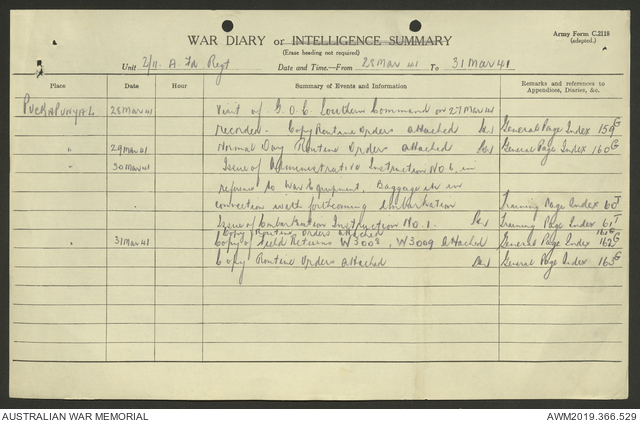 Army Form C.2118
(adapted.)
WAR DIARY or INTELLIGENCE SUMMARY
(Erase heading not required)
Unit 2/11. A. Fd Regt Date and Time.—From 28 Mar 41 To 31 Mar 41
Place Date Hour Summary of Events and Information Remarks and references to
Appendices, Diaries, &c.
PUCKAPUNYAL 28 Mar 41 Visit of G.O.C. Southern Command on 27 Mar 41
recorded. Copy Routine Orders attached General Page Index 159 G
" 29 Mar 41 Normal Day Routine Orders attached General Page Index 160 G
" 30 Mar 41 Issue of Administrative Instruction No 6, in
refence to War Equipment, Baggage etc in
connection with forthcoming Embarkation Training Page Index 60 T
Issue of Embarkation Instruction No. 1. Training Page Index 61 T
Copy Routine Orders attached 161 G
" 31 Mar 41 Copy of Field Returns W3008, W3009 attached General Page Index 162 G
Copy Routine Orders attached General Page Index 163 G
AUSTRALIAN WAR MEMORIAL AWM2019.366.529